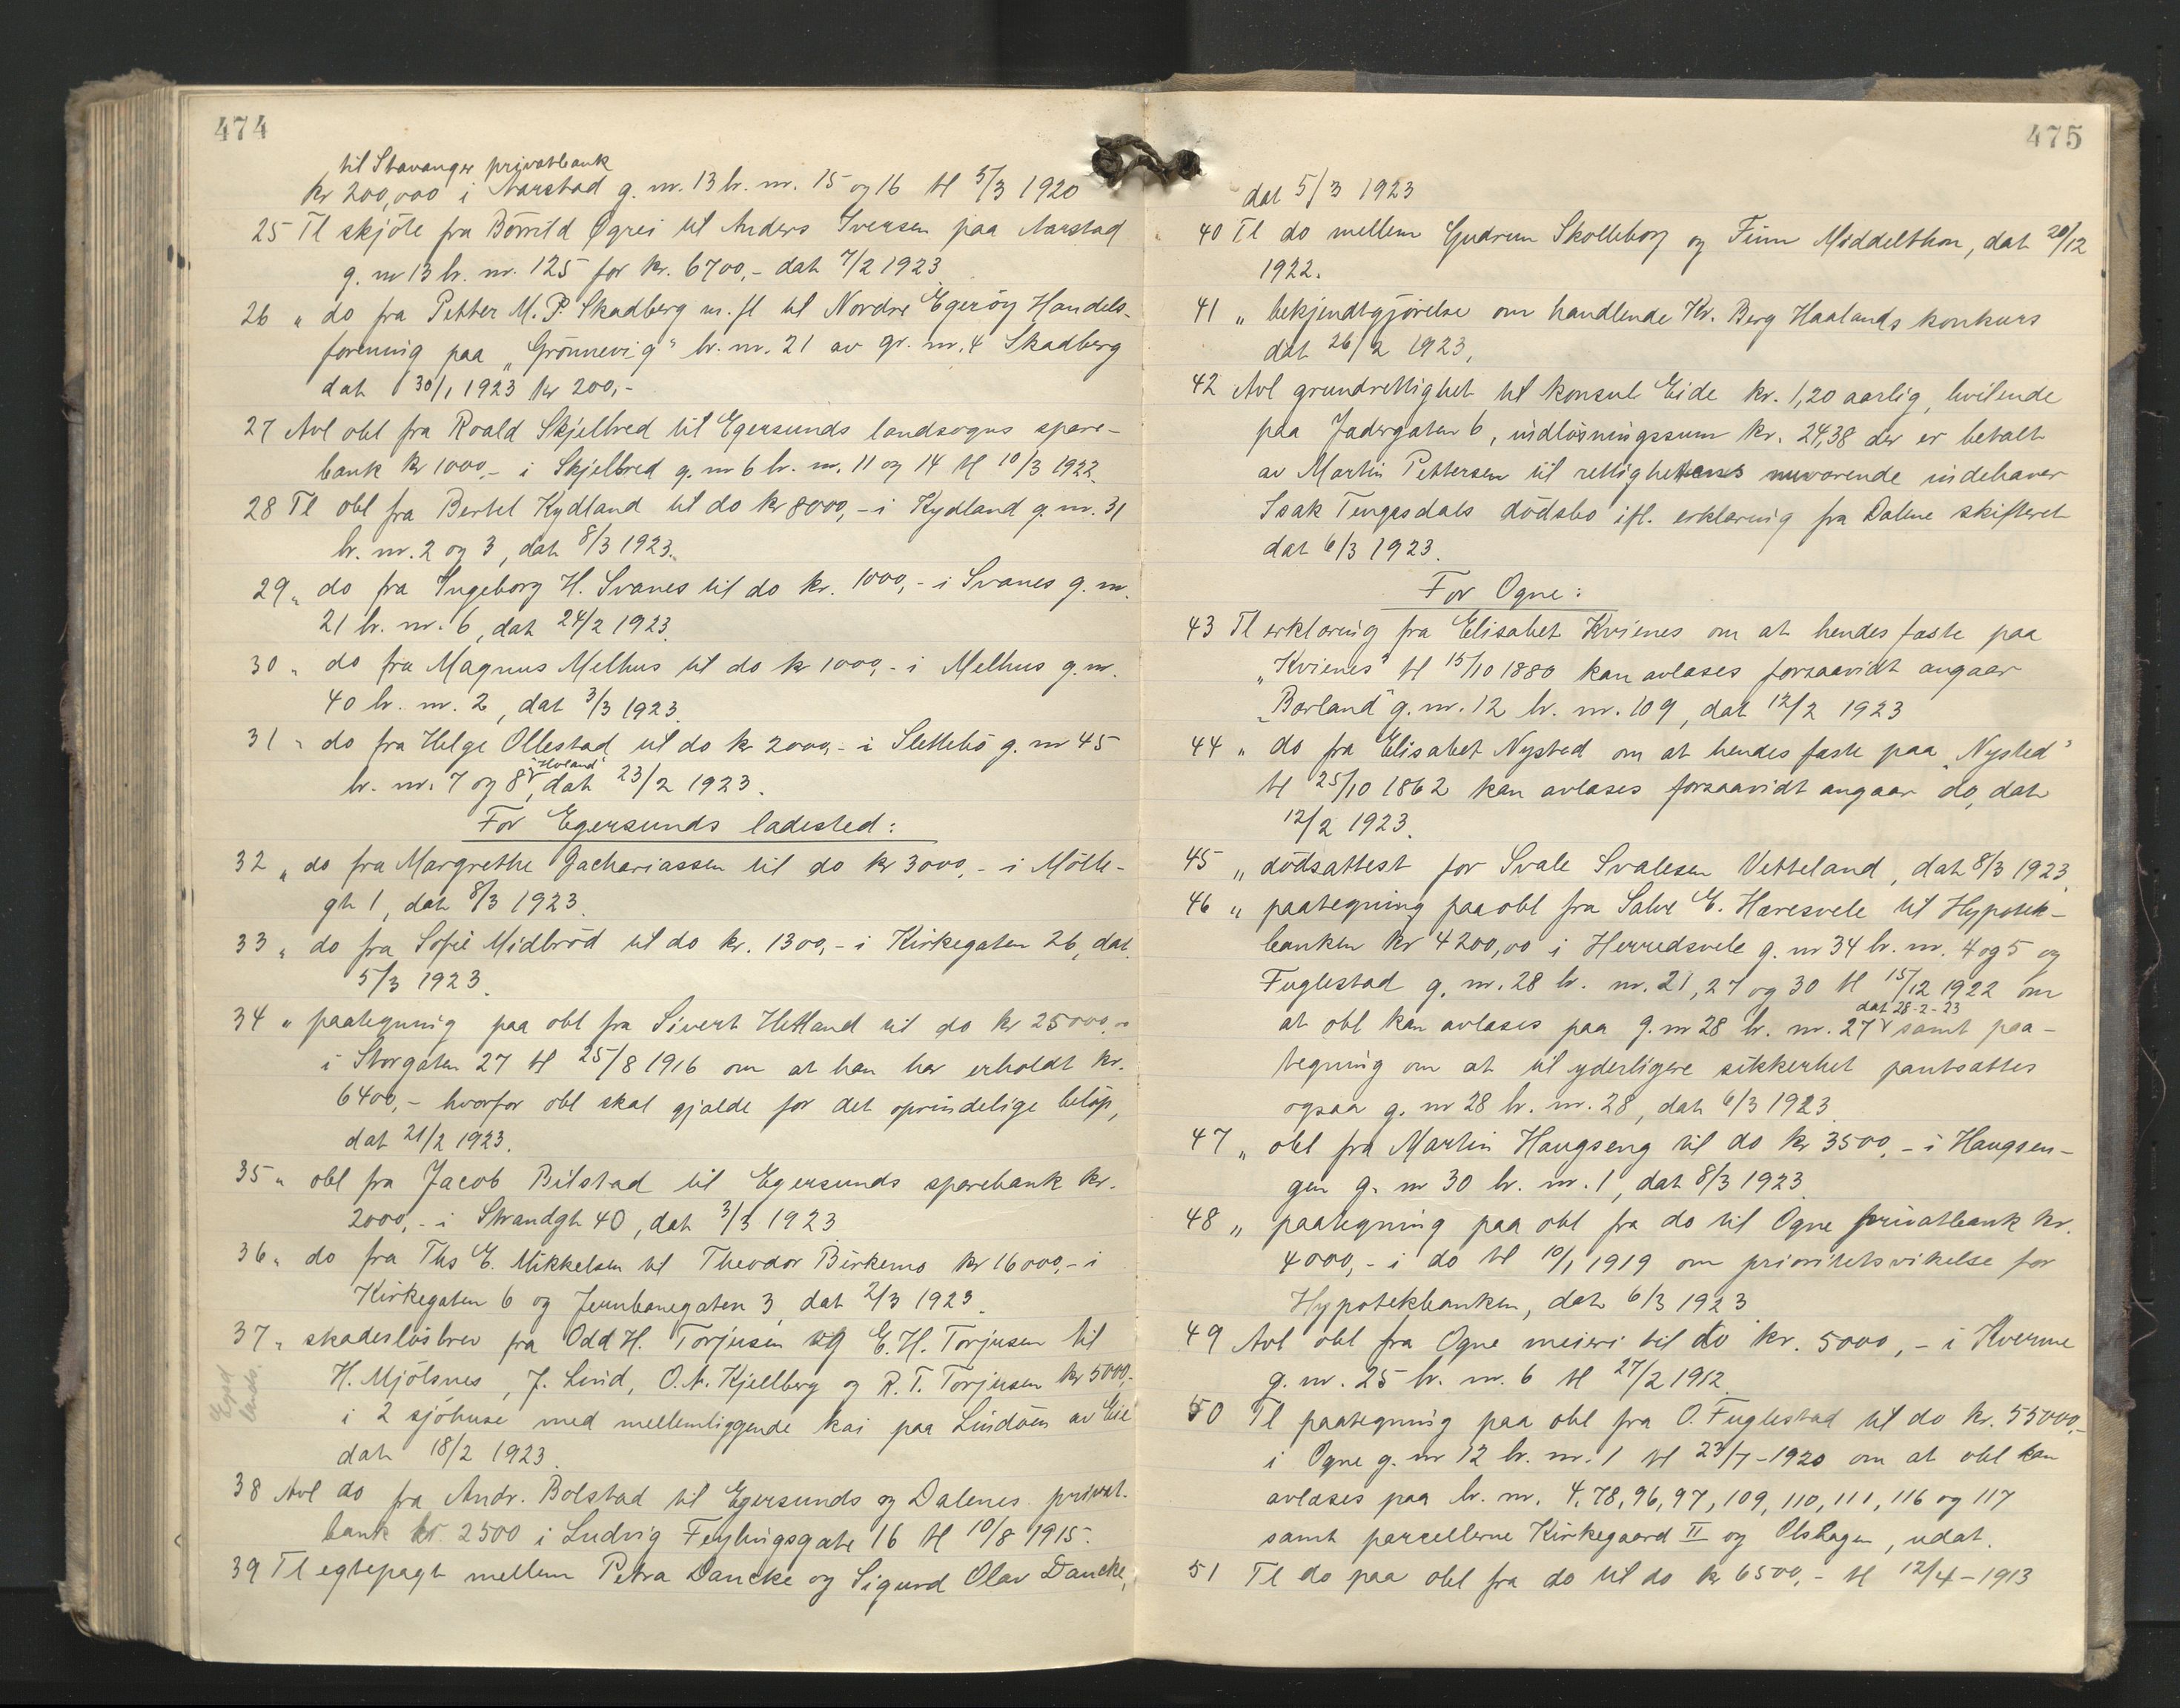 474
til Stavanger privatbank
kr 200,000 i Aarstad g. nr. 13 br. nr. 15 og 16 tl 5/3 1920
25 Tl skjöte fra Börrild Øgrei til Anders Iversen paa Aarstad
g. nr 13 br. nr. 125 for kr. 6700,- dat 7/2 1923
26 " do fra Petter M. P. Skadberg m. fl til Nordre Egeröy Handels-
forening paa "Grönnevig" br. nr. 21 av gr. nr. 4 Skadberg
dat 30/1 1923 kr 200,-
27 Avl obl fra Roald Skjelbred til Egersunds landsogns spare-
bank kr 1000,- i Skjelbred g. nr 6 br. nr. 11 og 14 tl 10/3 1922.
28 Tl obl fra Bertel Kydland til do kr 8000,- i Kydland g. nr. 31
br. nr. 2 og 3, dat 8/3 1923.
29 " do fra Ingeborg H. Svanes til do kr. 1000,- i Svanes g. nr.
21 br. nr. 6, dat 24/2 1923.
30 " do fra Magnus Melhus til do kr 1000,- i Melhus g. nr.
40 br. nr. 2, dat 3/3 1923.
31 " do fra Helge Ollestad til do kr 2000,- i Slettebö g. nr 45
br. nr. 7 og 8 "Hovland", dat 23/2 1923.
For Egersunds ladested:
32 " do fra Margrethe Zachariassen til do kr 3000,- i Mölle-
gt 1, dat 8/3 1923.
33 " do fra Sofie Midbröd til do kr. 1300,- i Kirkegaten 26, dat.
5/3 1923.
34 " paategning paa obl fra Sivert Hetland til do kr 25000,-
i Storgaten 27 tl 25/8 1916 om at han har erholdt kr.
6400,- hvorfor obl skal gjælde for det oprindelige belöp,
dat 21/2 1923.
35 " obl fra Jacob Bilstad til Egersunds sparebank kr.
2000,- i Strandgt 40, dat 3/3 1923
36 " do fra Ths E. Mikkelsen til Theodor Birkemo kr 16000,- i
Kirkegaten 6 og Jernbanegaten 3, dat 2/3 1923.
37 " skadeslösbrev fra Odd H. Torjusen og E. H. Torjusen til
H. Mjölsnes, J. Lind, O. A. Kjellberg og R. T. Torjusen kr 5000,-
i 2 sjöhuse med mellemliggende kai paa Lindöen av Eie
dat 18/2 1923.
Egsd
lands.
38 Avl do fra Andr. Bolstad til Egersunds og Dalenes privat-
bank kr. 2500 i Ludvig Feylingsgate 16 tl 10/8 1915.
39 Tl egtepagt mellem Petra Dancke og Sigurd Olav Dancke,
475
dat 5/3 1923
40 Tl do mellem Gudrun Skolleborg og Finn Middelthon, dat 20/12
1922.
41 " bekjendtgjörelse om handlende Kr. Berg Haalands konkurs
dat 26/2 1923,
42 Avl grundrettighet til konsul Eide kr. 1,20 aarlig, hvilende
paa Jadergaten 6, indlösningssum kr. 24,38 der er betalt
av Martin Pettersen til rettighetens nuværende indehaver
Isak Tengesdals dödsbo ifl. erklæring fra Dalene skifteret
dat 6/3 1923.
For Ogne:
43 Tl erklæring fra Elisabet Kvienes om at hendes fæste paa
"Kvienes" tl 15/10 1880 kan avlæses forsaavidt angaar
"Borland" g. nr. 12 br. nr. 109, dat 12/2 1923
44 " do fra Elisabet Nysted om at hendes fæste paa "Nysted"
tl 25/10 1862 kan avlæses forsaavidt angaar do, dat
12/2 1923.
45 " dödsattest for Svale Svalesen Vetteland, dat 8/3 1923.
46 " paategning paa obl fra Salve E. Hæresvele til Hypotek-
banken kr 4200,00 i Herredsvele g. nr 34 br. nr. 4 og 5 og
Fuglestad g. nr. 28 br. nr. 21, 27 og 30 tl 15/12 1922 om
at obl kan avlæses paa g. nr 28 br. nr. 27 dat 28-2-23 samt paa-
tegning om at til yderligere sikkerhet pantsættes
ogsaa g. nr 28 br. nr. 28, dat 6/3 1923.
47 " obl fra Martin Haugseng til do kr 3500,- i Haugsen-
gen g. nr 30 br. nr. 1, dat 8/3 1923.
48 " paategning paa obl fra do til Ogne privatbank kr.
4000,- i do tl 10/1 1919 om prioritetsvikelse for
Hypotekbanken, dat 6/3 1923
49 Avl obl fra Ogne meieri til do kr. 5000,- i Kverme
g. nr. 25 br. nr. 6 tl 27/2 1912.
50 Tl paategning paa obl fra O. Fuglestad til do kr. 55000,-
i Ogne g. nr 12 br. nr. 1 tl 23/7-1920 om at obl kan
avlæses paa br. nr. 4, 78, 96, 97, 109, 110, 111, 116 og 117
samt parcellerne Kirkegaard II og Olshagen, udat.
51 Tl do paa obl fra do til do kr 6500,- tl 12/4-1913